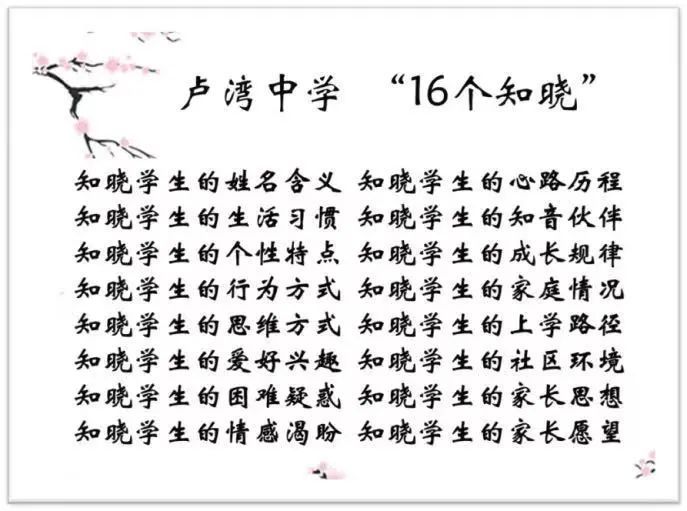 卢湾中学 “16个知晓”
知晓学生的姓名含义 知晓学生的心路历程
知晓学生的生活习惯 知晓学生的知音伙伴
知晓学生的个性特点 知晓学生的成长规律
知晓学生的行为方式 知晓学生的家庭情况
知晓学生的思维方式 知晓学生的上学路径
知晓学生的爱好兴趣 知晓学生的社区环境
知晓学生的困难疑惑 知晓学生的家长思想
知晓学生的情感渴盼 知晓学生的家长愿望